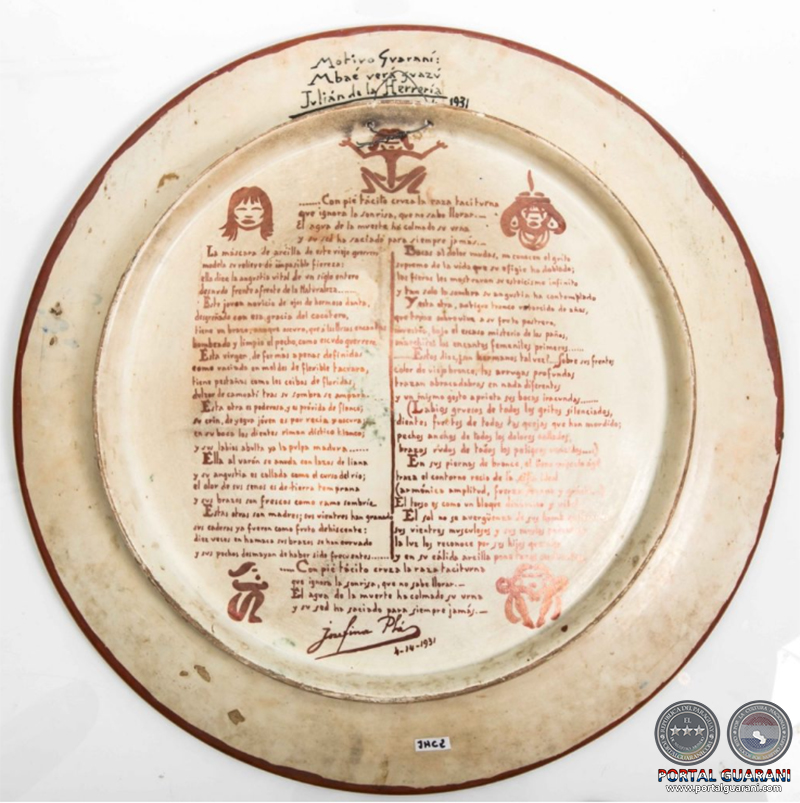 Motivo Guaraní:
Mbaé verá guazú
Julián de la Herrería
1931
......Con pié tácito cruza la raza taciturna
que ignora la sonrisa, que no sabe llorar....
El agua de la muerte ha colmado su urna
y su sed ha saciado para siempre jamás....
La máscara de arcilla de este viejo guerrero
modela su relieve de impasible fiereza;
ella dice la angustia vital de un siglo entero
desnudo frente a frente de la Naturaleza......
Este joven novicio de ojos de hermoso
con esa gracia del cocotero,
tiene un brazo, aunque oscuro, que a las
bombeado y limpio el pecho, como escudo guerrero
Esta virgen, de formas apenas definidas
como vaciada en moldes de flexible tacuara,
tiene pestañas como los ceibos de floridas,
dulzor de camuatí tras su sombra se ampara
Esta otra es poderosa, y es próvida de flancos;
su crin, de yegua joven es por recia
en su boca los dientes riman dística blancos;
y sus labios abulta ya la pulpa madura......
Ella al varón se anuda con lazos de liana
y su angustia es callada como el curso del río;
el olor de sus senos es de tierra temprana
y sus brazos son frescos como ramo sombrío.
Estas otras son madres; sus vientres han granado
sus caderas ya fueron como fruta dehiscente;
diez veces en hamaca sus brazos se han curvado
y sus pechos desmayan de haber sido fuentes......
Bocas al dolor mudas, no conocen el grito
supremo de la vida que su efigie ha doblado;
las fieras les mostraron su estoicismo infinito
y tan solo la sombra su angustia ha contemplado
Y esta otra, antiguo tronco de años,
que trepa sobre su fruto postrero,
bajo el escaso misterio de los paños,
los encantos femeniles primeros......
Estos dizque son hermanos tal vez!...Sobre sus frentes
color de viejo bronce, las arrugas profundas
trazan abracadabras en nada diferentes
y un mismo gesto aprieta sus bocas
(Labios gruesos de todos los gritos silenciados,
dientes fuertes de todas las quejas que han mordido;
pechos anchos de todos los dolores callados,
brazos rudos de todos los peligros
En sus piernas de bronce, el
traza el contorno recio de la
(armónica amplitud, fuerza
El torso es como un bloque
El sol no se avergüenza de su
sus vientres musculosos y sus
la luz los reconoce por sus hijos
y en su cálida arcilla pone
.....Con pié tácito cruza la raza taciturna
que ignora la sonrisa, que no sabe llorar...
El agua de la muerte ha colmado su urna
y su sed ha saciado para siempre jamás....
Josefina Plá
4-14-1931
JHC2
PORTAL GUARANI
www.portalguarani.com